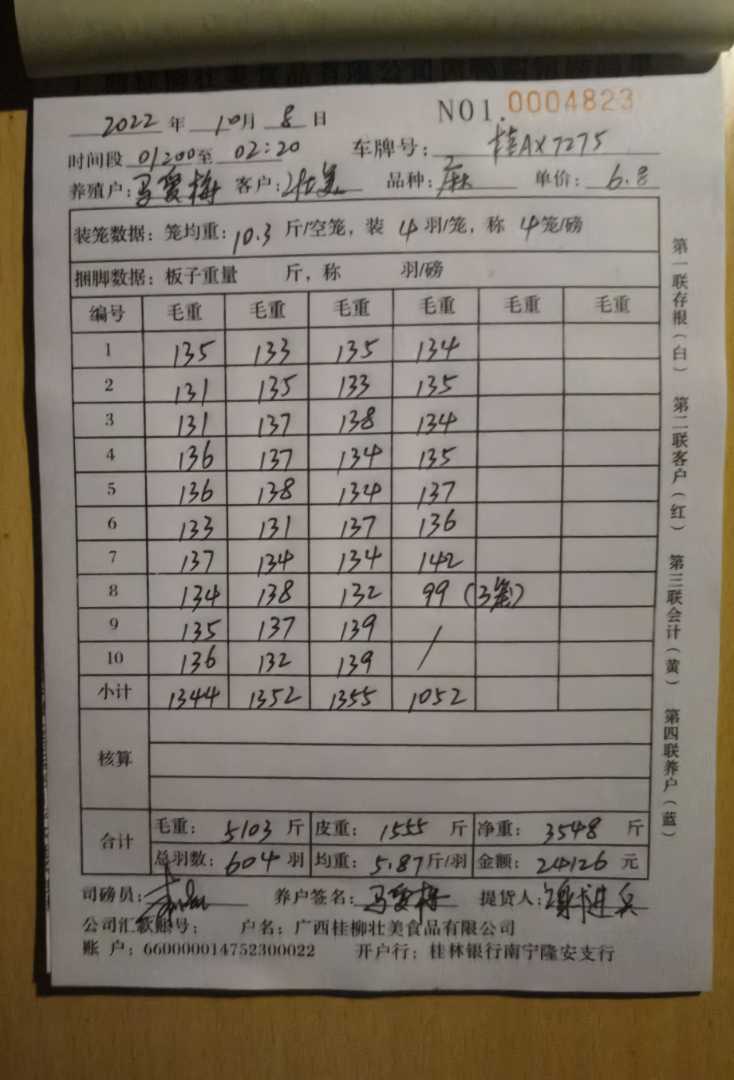 2022 年 10月 8 日 NO1.0004823
时间段 01200至 02:20 车牌号: 桂AX7275
养殖户: 马爱梅 客户: 壮美 品种: 麻 单价: 6.8
装笼数据: 笼均重: 10.3 斤/空笼, 装 4 羽/笼, 称 4 笼/磅
捆脚数据: 板子重量 斤, 称 羽/磅
编号 毛重 毛重 毛重 毛重 毛重 毛重
1 135 133 135 134
2 131 135 133 135
3 131 137 138 134
4 136 137 134 135
5 136 138 134 137
6 133 131 137 136
7 137 134 134 142
8 134 138 132 99 (3笼)
9 135 137 139 /
10 136 132 139
小计 1344 1352 1355 1052
核算
合计 毛重: 5103 斤 皮重: 1555 斤 净重: 3548 斤
总羽数: 604 羽 均重: 5.87斤/羽 金额: 24126 元
司磅员: 养户签名: 马爱梅 提货人:
公司汇款账号: 户名: 广西桂柳壮美食品有限公司
账 户: 660000014752300022 开户行: 桂林银行南宁隆安支行
第一联存根(白) 第二联客户(红) 第三联会计(黄) 第四联养户(蓝)